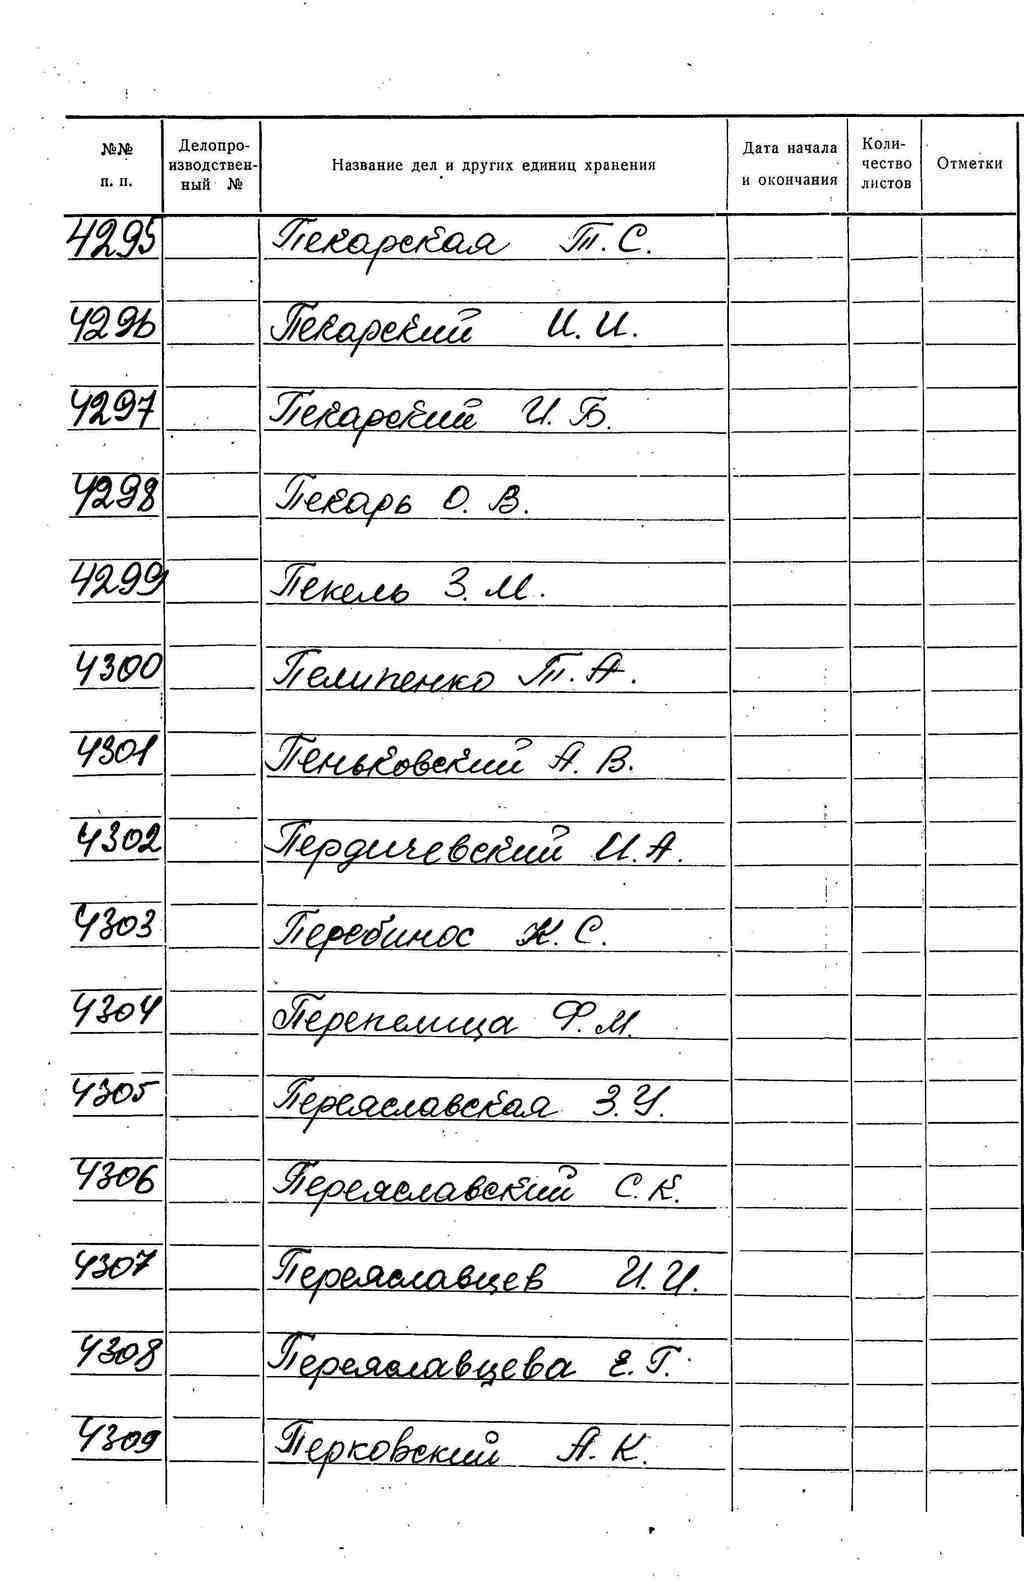 №№ п. п. Делопроизводственный № Название дел и других единиц хранения Дата начала и окончания Количество листов Отметки
4295 Пекарская Т. С.
4296 Пекарский И. И.
4297 Пекарский И. Б.
4298 Пекарь О. В.
4299 Пекель З. М.
4300 Пелипенко Т. А.
4301 Пеньковский А. В.
4302 Пердичевский И. А.
4303 Перебинос К. С.
4304 Перепелица Ф. М.
4305 Переяславская З. И.
4306 Переяславский С. К.
4307 Переяславцев И. И.
4308 Переяславцева Е. Г.
4309 Перковский А. К.